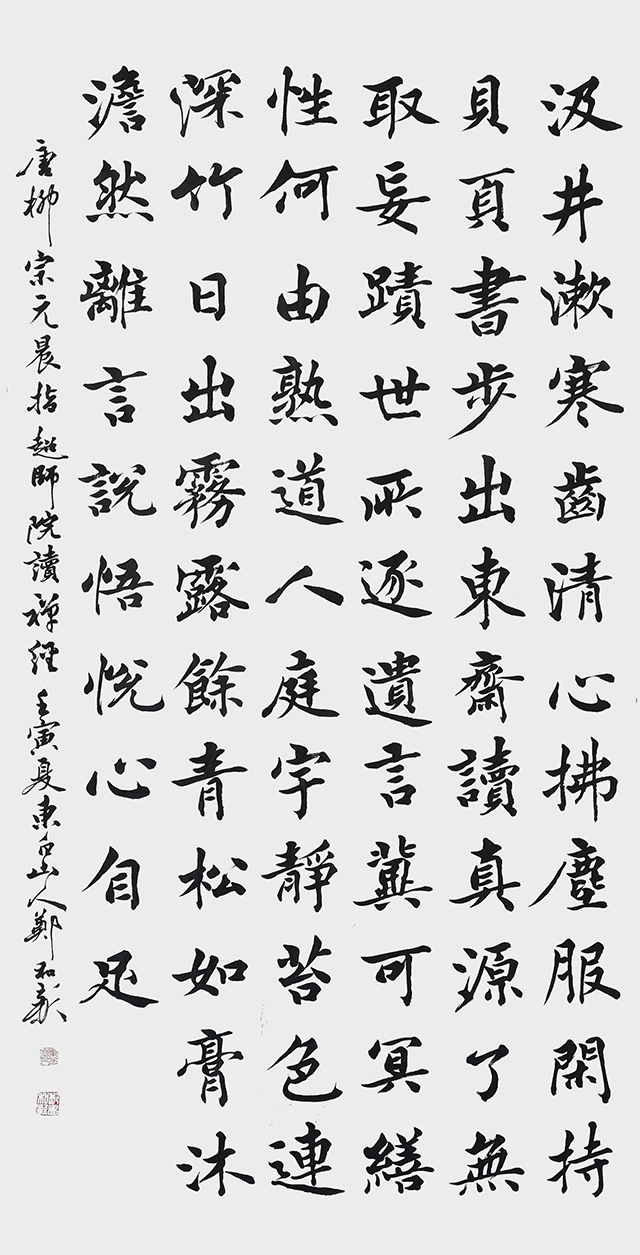 汲井漱寒齒清心拂塵服閑持
貝頁書步出東齋讀真源了無
取妄蹟世所逐遺言冀可冥繕
性何由熟道人庭宇靜苔色連
深竹日出霧露餘青松如膏沐
澹然離言說悟悅心自足
唐柳宗元晨指超師院讀禪經壬寅夏東白山人鄭和新